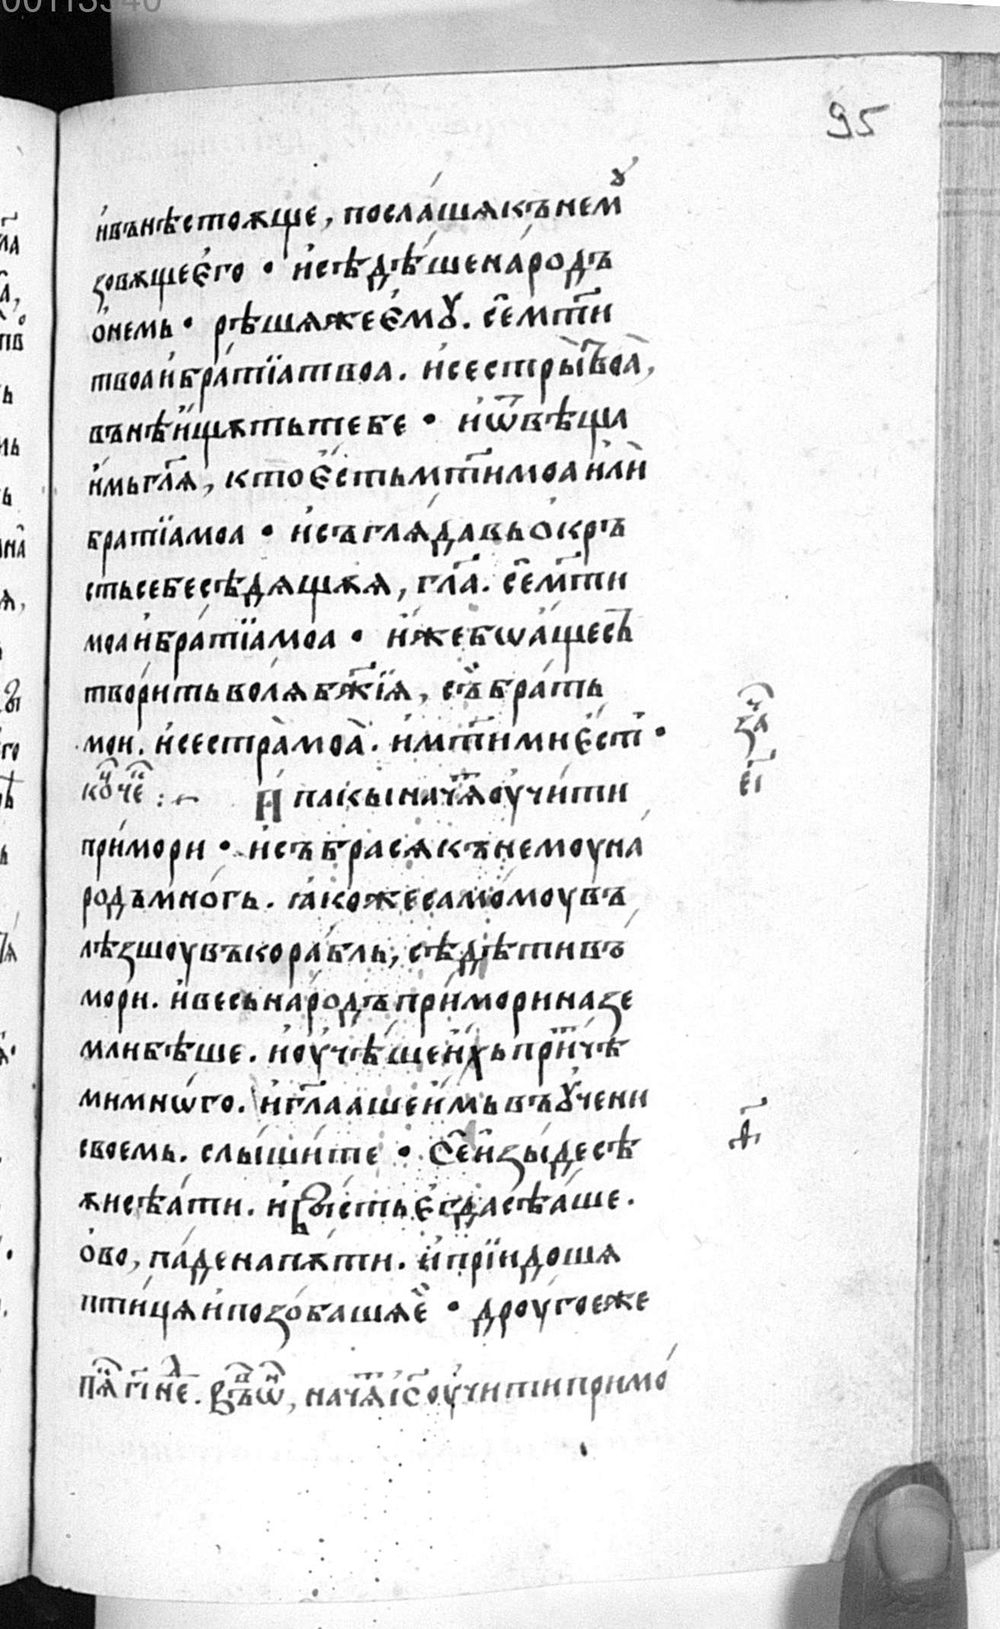 95
и҆вънѣстоѫще, посла́шѧкънемꙋ̀
зовѫщеє҆го • и҆сѣдѣ́шенаро́дъ
ѡ҆не́мь • рѣ́шѧжеє҆мꙋ. се҆мт҃и
твоаи҆бра́тїатвоа. и҆сестры̀твоа̀,
вънѣи҆щѫтьтебе • и҆ѿвѣща
и҆мьгл҃ѧ, ктоє҆стьмт҃имоаи҆лѝ
братїамоа • и҆съглѧ́давьо҆кръ
стьсебесѣдѧщѫѧ, гл҃а. се҆мт҃и
моаи҆бра́тїамоа • и҆жебѡа҆щесъ
твори́тьволѧбж҃їѧ, съ́бра́ть
мои. и҆сестра̀моа̀. и҆мт҃имиє҆ст҆ •
коⷩ҇че : ⁓ И пакыначѧ́оу҆чи́ти
при́мори • и҆събрасѧкънемоуна́
родъмно́гь. ꙗ҆кожесамо́моувъ
лѣ́зшоувъкора́бль, сѣдѣ́тивъ
мори. и҆весьнаро́дъпри́мориназе
млибѣ́ше. и҆оу҆чѣ́шеи҆хьпри́тчѣ
мимнѡ́го. и҆гл҃аашеи҆мьвъꙋ҆чени
своемь. слы́шите • Се҆и҆зы́десѣ
ѫисѣ́ати. и҆бы́стьє҆гдасѣ́аше.
о҆во, па́денапѫти. и҆прїидошѧ
пти́цѧи҆позо́башѧѐ • дроу́гоеже
за҃
еі҃
д҃і
пⷮѧ гі҃ не҃. Въѡ҆н, начѧ́і҆с҃оу҆читипримо́